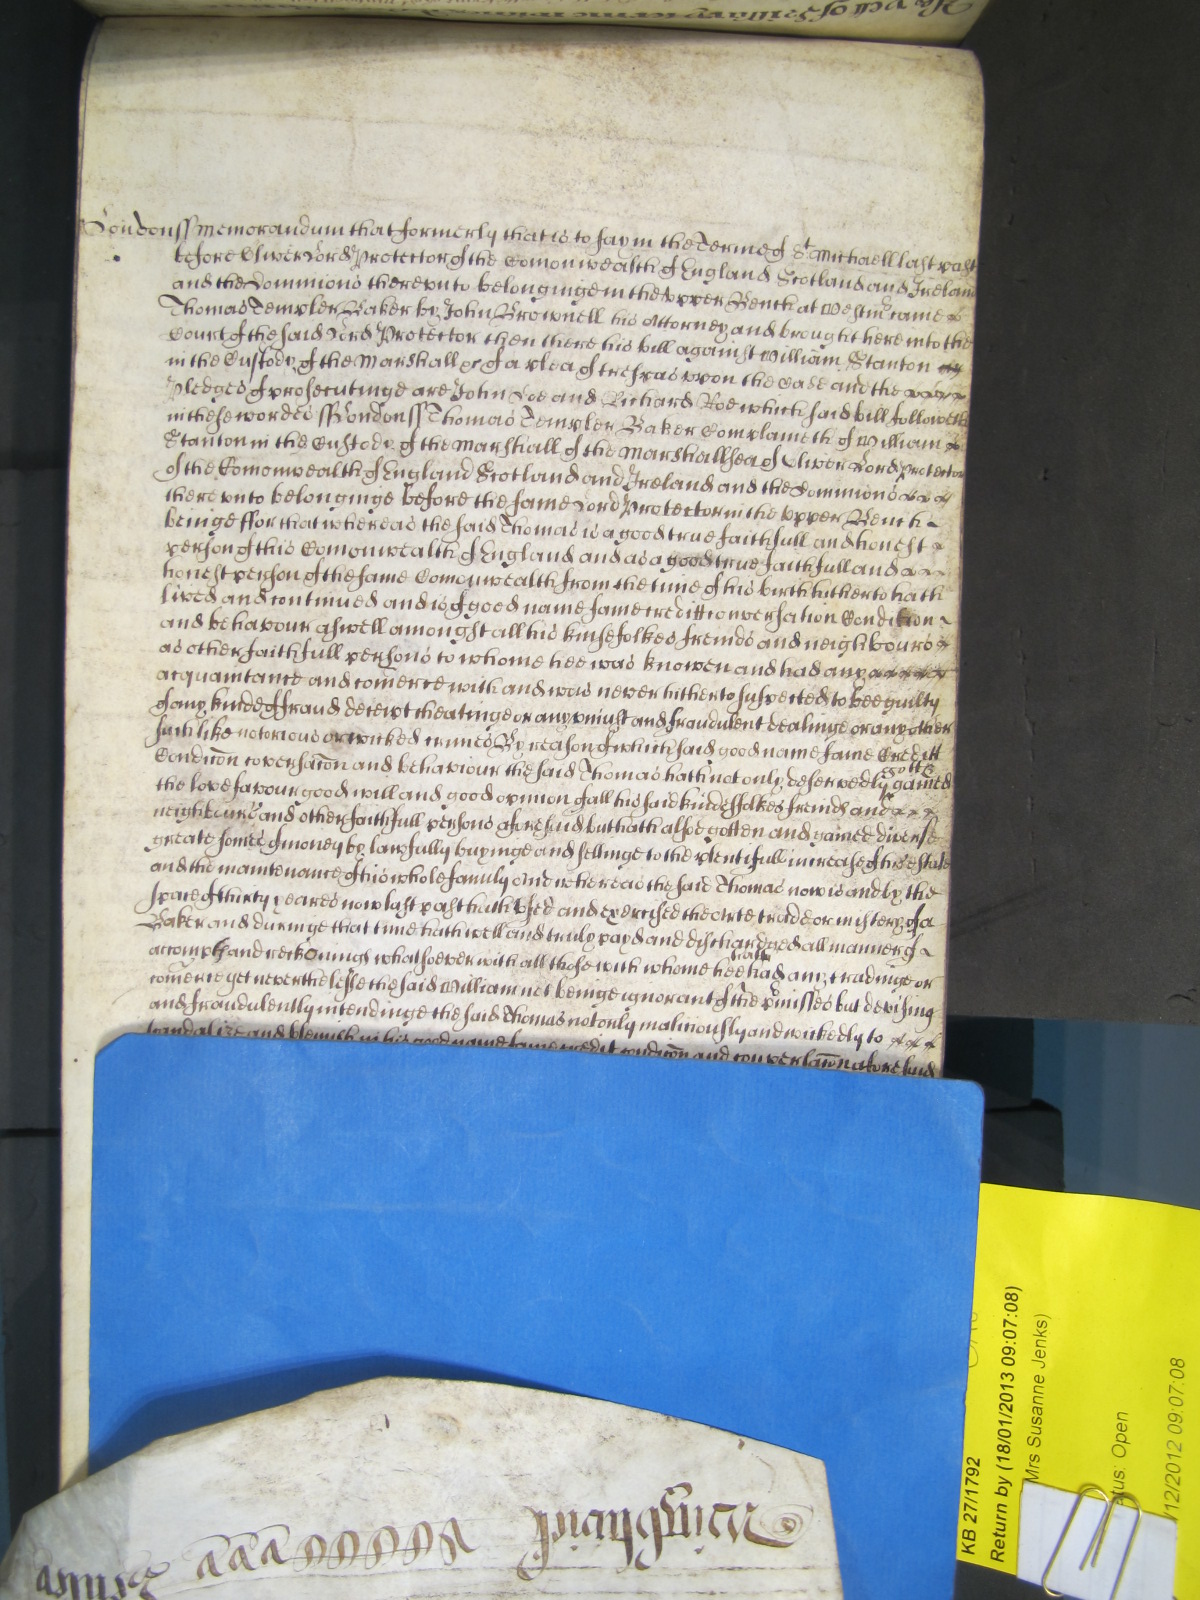 London ss Memorandum that formerly that is to say in the Terme of St Michaell last past
before Oliver Lord Protector of the Comonwealth of England Scotland and Ireland
and the Dominions thereunto belonginge in the Upper Bench at Westm came
Thomas Templer Baker by John Brownell his Attorney and brought here into the
Court of the said Lord Protector then there his bill against William Stanton
in the Custody of the Marshall &c of a plea of trespas upon the Case and the
Pledges of prosecutinge are John Doe and Richard Roe which said bill followeth
in these wordes ss London ss Thomas Templer Baker Complaineth of William
Stanton in the Custody of the Marshall of the Marshallsea of Oliver Lord Protector
of the Comonwealth of England Scotland and Ireland and the Dominions
thereunto belonginge before the same Lord Protector in the Upper Bench
beinge ffor that whereas the said Thomas is a good true faithfull and honest
person of this Comonwealth of England and as a good true faithfull and
honest person of the same Comonwealth from the time of his birth hitherto hath
lived and continued and is of good name fame creditt conversation Condition
and behavour aswell amongst all his kinsefolkes freinds and neighbours
as other faithfull persons to whome hee was knowen and had any
acquaintance and comerce with and was never hitherto suspected to bee guilty
of any kinde of fraud deceipt cheatinge or any uniust and fraudulent dealinge or any other
such like notorious or wicked crimes By reason of which said good name fame Creditt
Condicon conversacon and behaviour the said Thomas hath not only deservedly gained
the love favour good will and good opinion of all his said kindesfolkes freinds and
neighbours and other faithfull persons aforesaid but hath alsoe gotten and gained diverse
greate somes of money by lawfully buyinge and sellinge to the plentifull increase of his estate
and the maintenance of his whole family And whereas the said Thomas now is and by the
space of thirty yeares now last past hath used and exercised the arte trade or mistery of a
Baker and duringe that time hath well and truly payd and discharged all manner of
accompts and reckonings whatsoever with all those with whome hee had any tradinge or
comerce yet neverthelesse the said William not beinge ignorant of the pmisses but devising
and fraudulently intendinge the said Thomas not only maliciously and wickedly to
scandalize and blemish in his good name fame credit condicon and conversacon aforesaid
KB 27/1792
Return by (18/01/2013 09:07:08)
Mrs Susanne Jenks)
tus: Open
12/2012 09:07:08